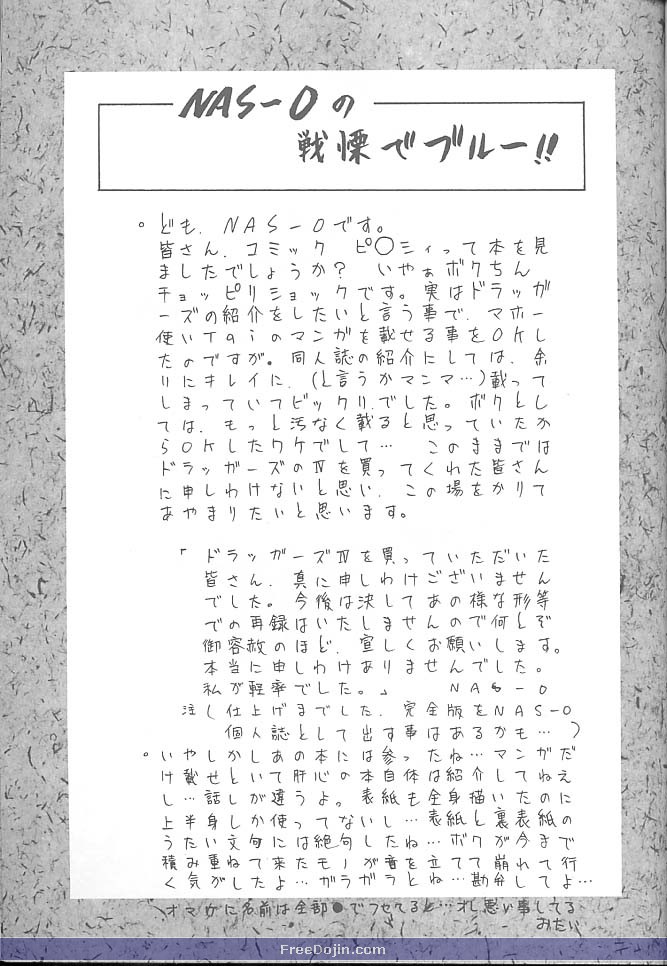 NAS-Oの
戦慄でブルー!!
。ども、NAS-Oです。
皆さん、コミック ピ○シィって本を見
ましたでしょうか? いやぁボクちん
チョッピリショックです。実はドラッガ
ーズの紹介をしたいと言う事で、マホー
使いTaiのマンガを載せる事をOKし
たのですが。同人誌の紹介にしては、余
りにキレイに、(と言うかマンマ…)載って
しまっていてビックリ、でした。ボクとし
ては、もっと汚なく載ると思っていたか
らOKしたワケでして… このままでは
ドラッガーズのⅣを買ってくれた皆さん
に申しわけないと思い、この場をかりて
あやまりたいと思います。
「ドラッガーズⅣを買っていただいた
皆さん、真に申しわけございません
でした。今後は決してあの様な形等
での再録はいたしませんので何とぞ
御容赦のほど、宜しくお願いします。
本当に申しわけありませんでした。
私が軽率でした。」 NAS-O
注(仕上げまでした、完全版をNAS-O
個人誌として出す事はあるかも…)
。いやしかしあの本には参ったね…マンガだ
け載せといて肝心の本自体は紹介してねえ
し…話しが違うよ。表紙も全身描いたのに
上半身しか使ってないし…表紙と裏表紙の
うたい文句には絶句したね…ボクが今まで
積み重ねて来たモノが音を立てて崩れて行
く気がしたよ…ガラガラとね…勘弁してよ…
オマケに名前は全部●でフセてると…オレ悪い事してる
みたい
FreeDojin.com